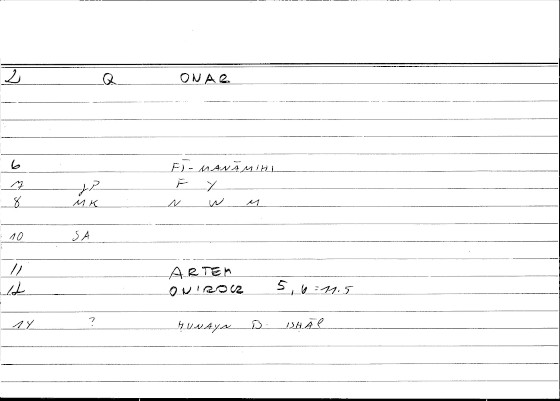 2 Q ONAR
6 FĪ-MANĀMIHI
7 JP F Y
8 MK N W M
10 SA
11 ARTEM
12 ONIROCR 5, 6 = 11.5
14 ? HUNAYN B. ISHĀQ